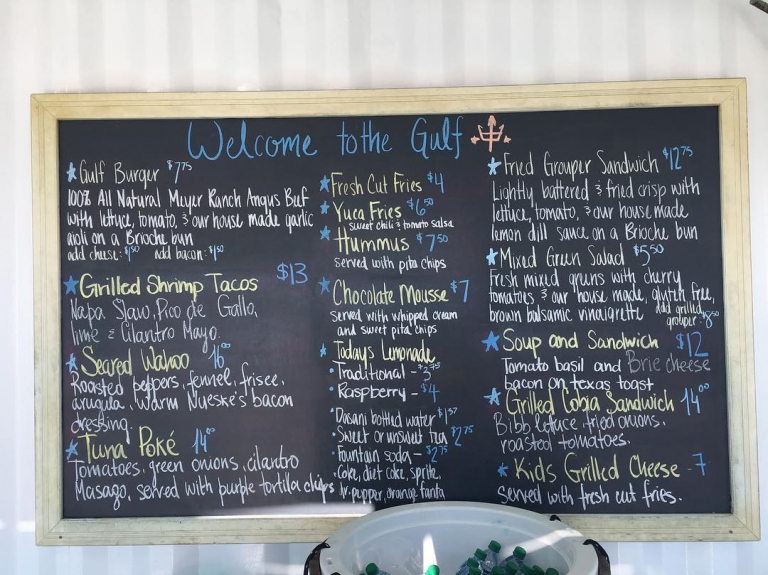 Welcome to the Gulf
Gulf Burger $7.75
100% All Natural Meyer Ranch Angus Beef
with lettuce, tomato, & our house made garlic
aioli on a Brioche bun
add cheese: $1.50 add bacon: $1.50
Grilled Shrimp Tacos $13
Napa Slaw, Pico de Gallo,
lime & Cilantro Mayo.
Seared Wahoo 16.00
Roasted peppers, fennel, frisee,
arugula, warm Nueske's bacon
dressing.
Tuna Poké 14.00
Tomatoes, green onions, cilantro
Masago, served with purple tortilla chips
Fresh Cut Fries $4
Yuca Fries $6.50
sweet chili & tomato salsa
Hummus $7.50
served with pita chips
Chocolate Mousse $7
served with whipped cream
and sweet pita chips
Todays Lemonade
Traditional - $3.75
Raspberry - $4
Dasani bottled water $1.57
Sweet or unsweet tea $2.75
Fountain soda - $2.75
Coke, diet coke, sprite,
dr. pepper, orange fanta
Fried Grouper Sandwich $12.75
Lightly battered & fried crisp with
lettuce, tomato, & our house made
lemon dill sauce on a Brioche bun
Mixed Green Salad $5.50
Fresh mixed greens with cherry
tomatoes & our house made, gluten free,
brown balsamic vinaigrette add grilled
grouper $8.50
Soup and Sandwich $12
Tomato basil and Brie cheese
bacon on texas toast
Grilled Cobia Sandwich 14.00
Bibb lettuce, fried onions,
roasted tomatoes.
Kids Grilled Cheese - 7
Served with fresh cut fries.